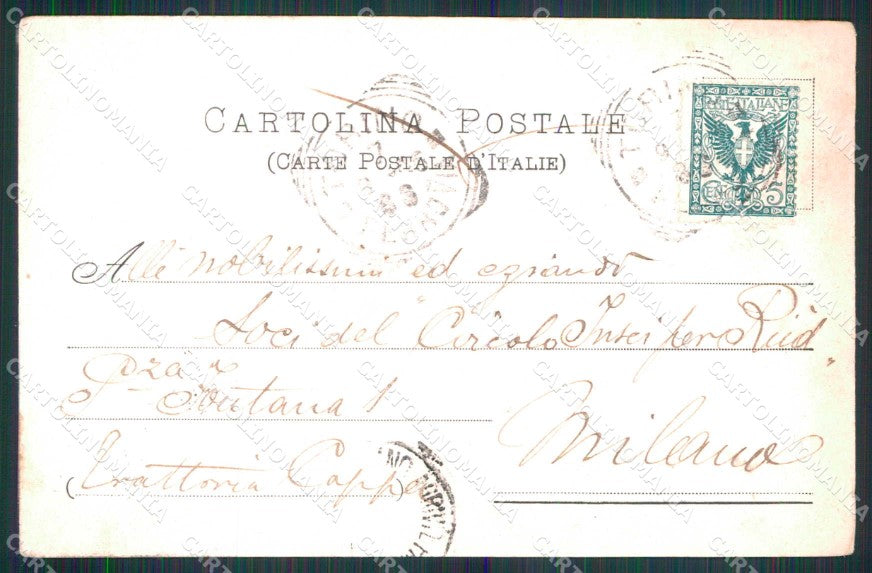 CARTOLINA POSTALE
(CARTE POSTALE D'ITALIE)
POSTE ITALIANE
CENT. 5
Alli nobilissimi ed
Soci del "Circolo
Pza Fontana 1
Milano
(Trattoria Cappa)
CARTOLINOMANIA